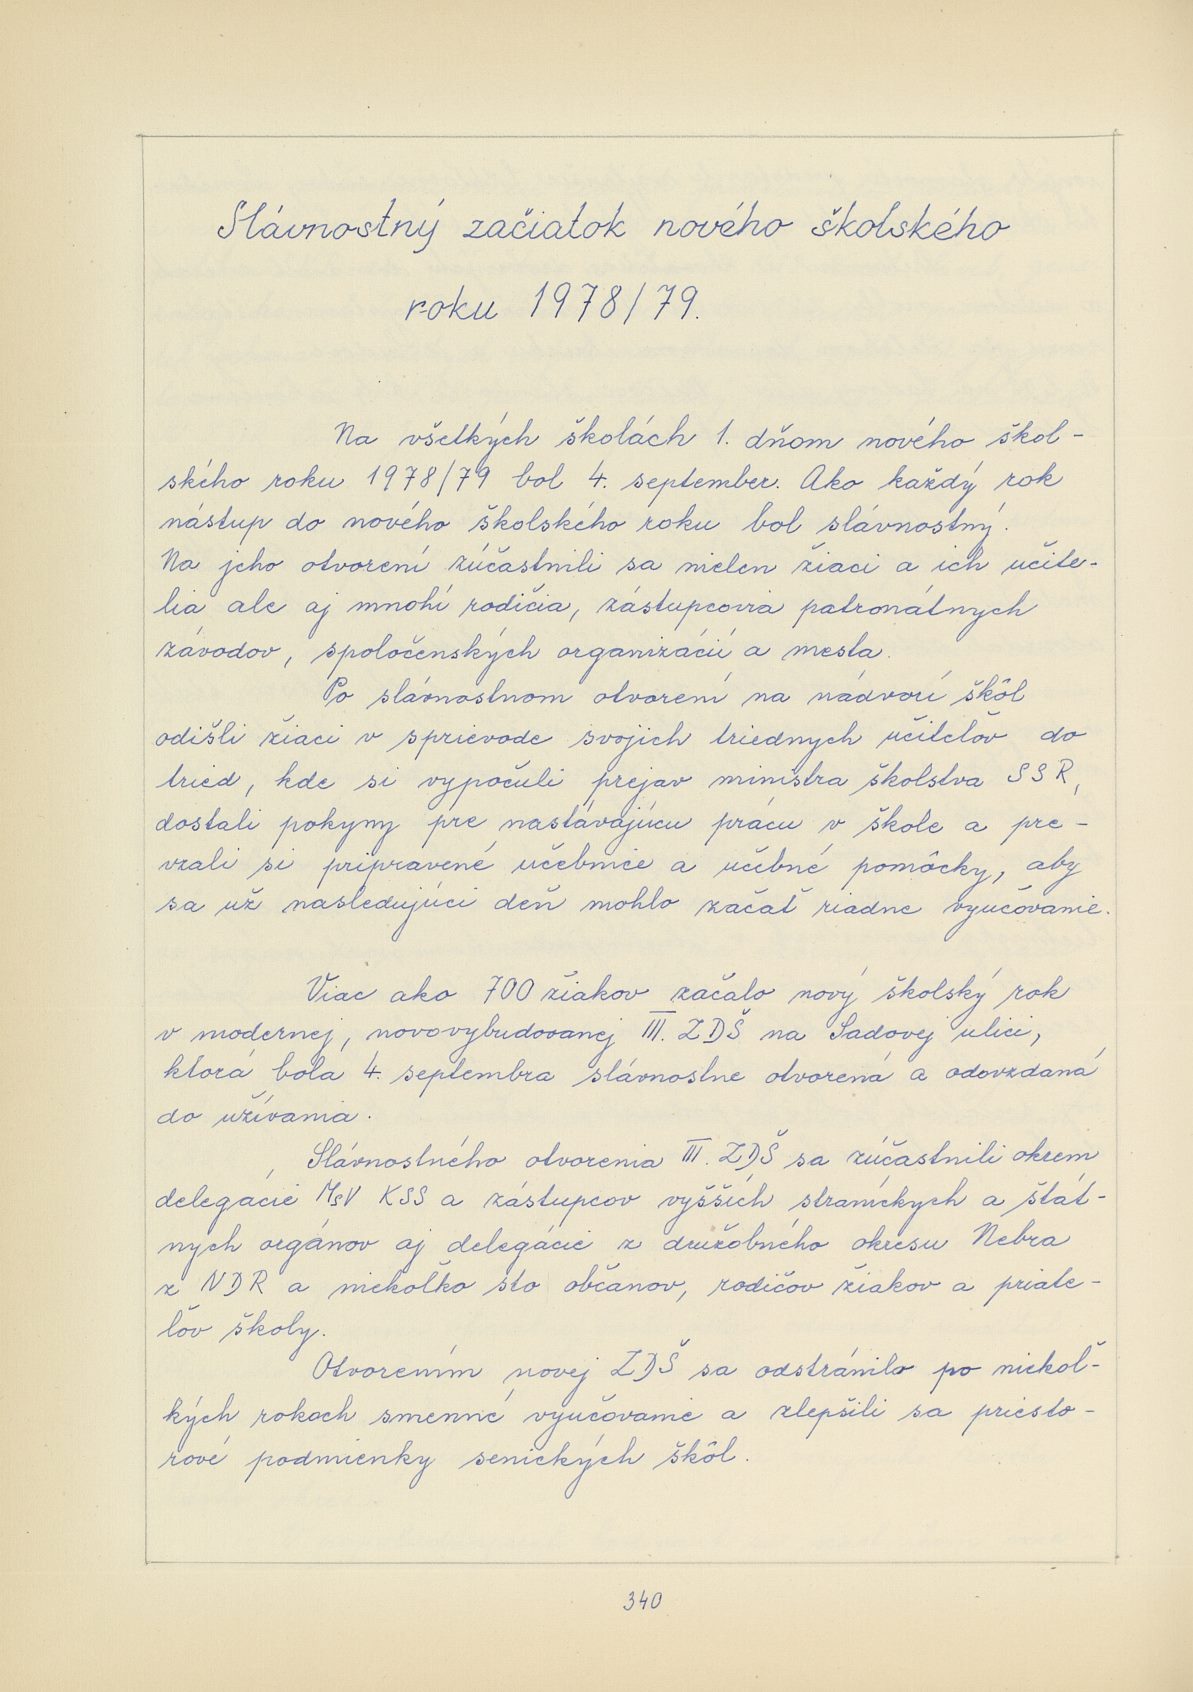 Slávnostný začiatok nového školského
roku 1978/79.
Na všetkých školách 1. dňom nového škol-
ského roku 1978/79 bol 4. september. Ako každý rok
nástup do nového školského roku bol slávnostný.
Na jeho otvorení zúčastnili sa nielen žiaci a ich učite-
lia ale aj mnohí rodičia, zástupcovia patronátnych
závodov, spoločenských organizácií a mesta.
Po slávnostnom otvorení na nádvorí škôl
odišli žiaci v sprievode svojich triednych učiteľov do
tried, kde si vypočuli prejav ministra školstva SSR,
dostali pokyny pre nastávajúcu prácu v škole a pre-
vzali si pripravené učebnice a učebné pomôcky, aby
sa už nasledujúci deň mohlo začať riadne vyučovanie.
Viac ako 700 žiakov začalo nový školský rok
v modernej, novovybudovanej III. ZDŠ na Sadovej ulici,
ktorá bola 4. septembra slávnostne otvorená a odovzdaná
do užívania.
Slávnostného otvorenia III. ZDŠ sa zúčastnili okrem
delegácie MsV KSS a zástupcov vyšších straníckych a štát-
nych orgánov aj delegácie z družobného okresu Nebra
z NDR a niekoľko sto občanov, rodičov žiakov a priate-
ľov školy.
Otvorením novej ZDŠ sa odstránilo po niekoľ-
kých rokoch smenné vyučovanie a zlepšili sa priesto-
rové podmienky senických škôl.
340